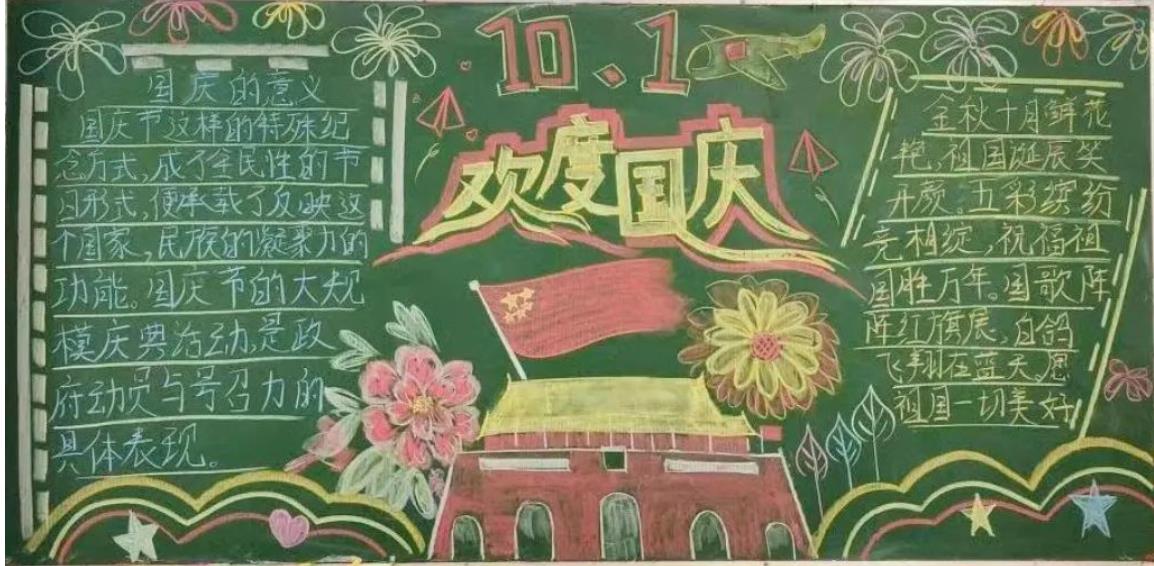 10.1
欢度国庆
国庆的意义
国庆节这样的特殊纪
念方式,成了全民性的节
日形式,便承载了反映这
个国家,民族的凝聚力的
功能。国庆节的大规
模庆典活动,是政
府动员与号召力的
具体表现。
金秋十月鲜花
艳,祖国诞辰笑
开颜。五彩缤纷
竞相绽,祝福祖
国胜万年。国歌阵
阵红旗展,白鸽
飞翔在蓝天。愿
祖国一切美好